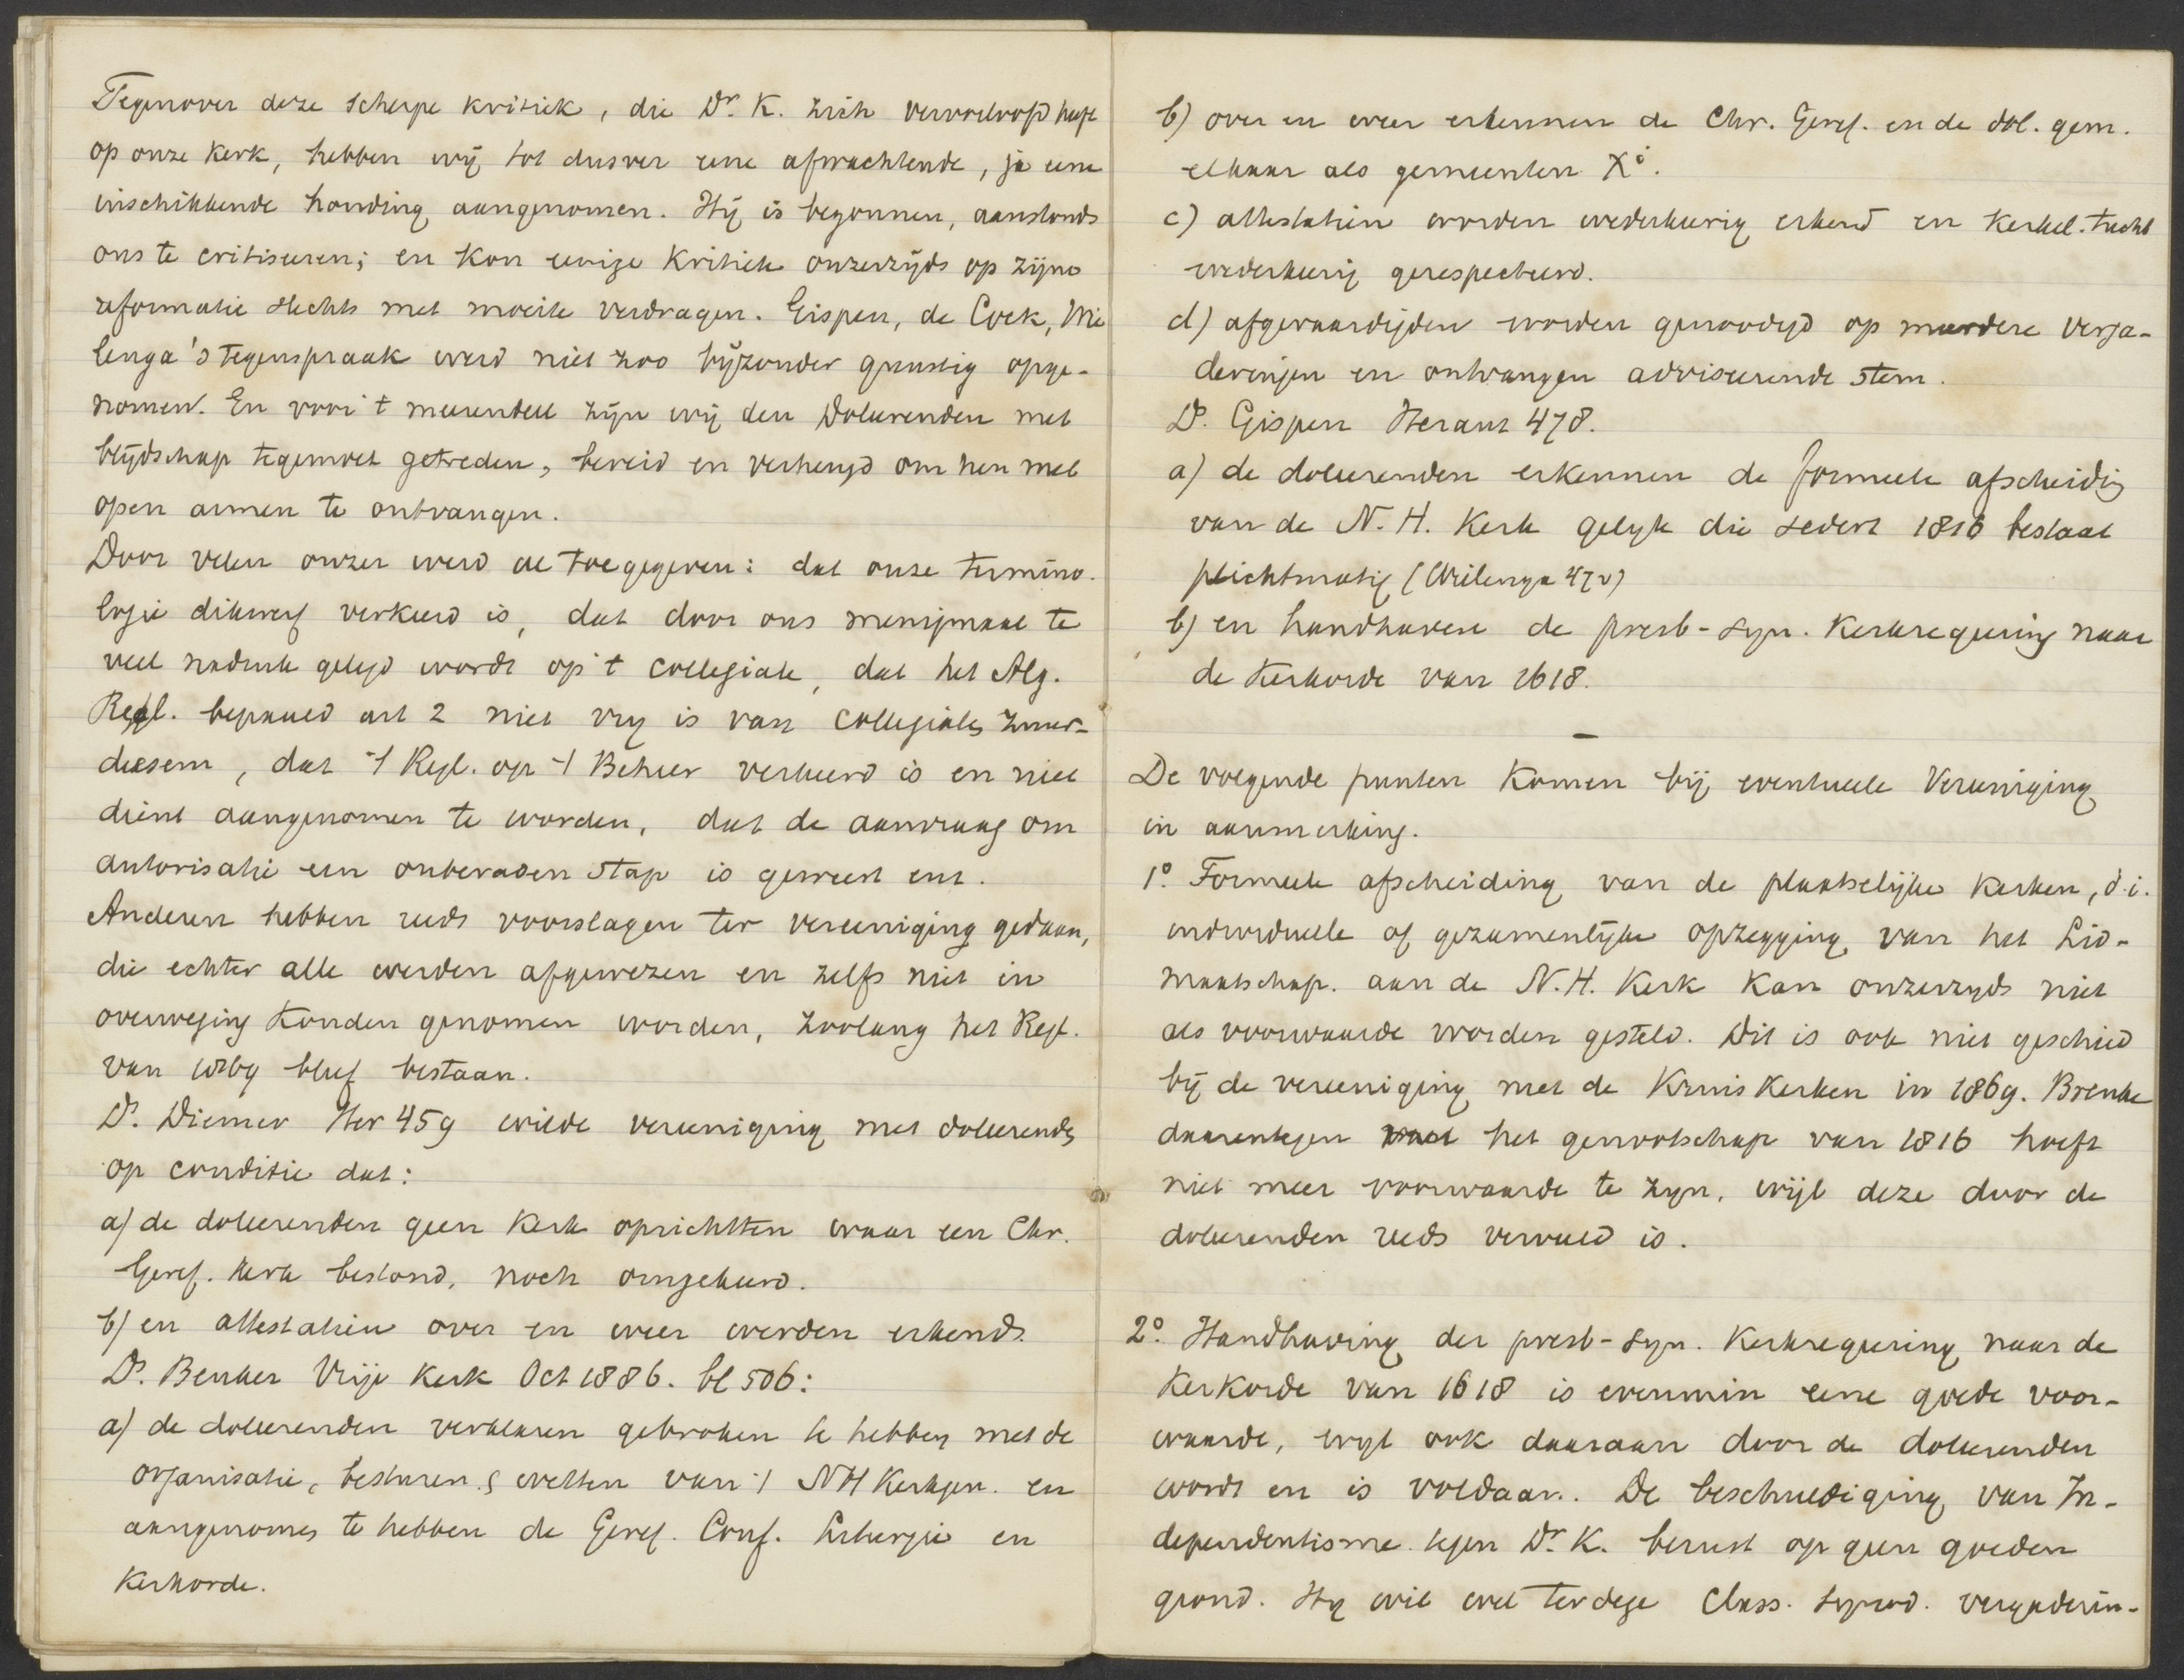 Tegenover deze scherpe kritiek, die Dr. K. zich veroorloofd heeft
op onze Kerk, hebben wij tot dusver eene afwachtende, ja eene
inschikkende houding aangenomen. Hij is begonnen, aanstonds
ons te critiseeren; en kon eenige kritiek onzerzijds op zijne
reformatie slechts met moeite verdragen. Gispen, de Cock, Wie
lenga's tegenspraak werd niet zoo bijzonder gunstig opge-
nomen. En voor 't meerendeel zijn wij den Doleerenden met
blijdschap tegemoet getreden, bereid en verheugd om hen met
open armen te ontvangen.
Door velen onzer werd al toegegeven: dat onze termino-
logie dikwerf verkeerd is, dat door ons menigmaal te
veel nadruk gelegd wordt op 't collegiale, dat het Alg.
Regl. bepaald art 2 niet vrij is van collegialen zuur-
deesem, dat 't Regl. op 't Beheer verkeerd is en niet
dient aangenomen te worden, dat de aanvraag om
autorisatie een onberaden stap is geweest enz.
Anderen hebben reeds voorslagen ter vereeniging gedaan,
die echter alle werden afgewezen en zelfs niet in
overweging konden genomen worden, zoolang het Regl.
van 1869 bleef bestaan.
Ds. Diemer Her 459 wilde vereeniging met doleerenden
op conditie dat:
a) de doleerenden geen Kerk oprichtten waar een Chr.
Geref. Kerk bestond, noch omgekeerd.
b) en attestatien over en weer werden erkend.
Ds. Beuker Vrije Kerk Oct 1886. bl 506:
a) de doleerenden verklaren gebroken te hebben met de
organisatie, besturen & wetten van 't NH Kerkgen. en
aangenomen te hebben de Geref. Conf. Liturgie en
Kerkorde.
b) over en weer erkennen de Chr. Geref. en de dol. gem.
elkaar als gemeenten Xi.
c) attestatien worden wederkeerig erkend en Kerkel. tucht
wederkeerig gerespecteerd.
d) afgevaardigden worden genoodigd op meerdere verga-
deringen en ontvangen adviseerende stem.
Ds. Gispen Heraut 478.
a) de doleerenden erkennen de formeele afscheidig
van de N. H. Kerk gelijk die sedert 1816 bestaat
plichtmatig (Wielenga 470)
b) en handhaven de presb-syn. Kerkregeering naar
de Kerkorde van 1618.
—
De volgende punten komen bij eventueele Vereeniging
in aanmerking.
1º. Formeele afscheiding van de plaatselijke Kerken, d.i.
individueele of gezamenlijke opzegging van het Lid-
maatschap aan de N. H. Kerk kan onzerzijds niet
als voorwaarde worden gesteld. Dit is ook niet geschied
bij de vereeniging met de Kruiskerken in 1869. Breuke
daarentegen met het genootschap van 1816 hoeft
niet meer voorwaarde te zijn, wijl deze door de
doleerenden reeds vervuld is.
2º. Handhaving der presb-syn. Kerkregeering naar de
Kerkorde van 1618 is evenmin eene goede voor-
waarde, wijl ook daaraan door de doleerenden
wordt en is voldaan. De beschuldiging van In-
dependentisme tegen Dr. K. berust op geen goeden
grond. Hij wil wel terdege Class. Synod. vergaderin-